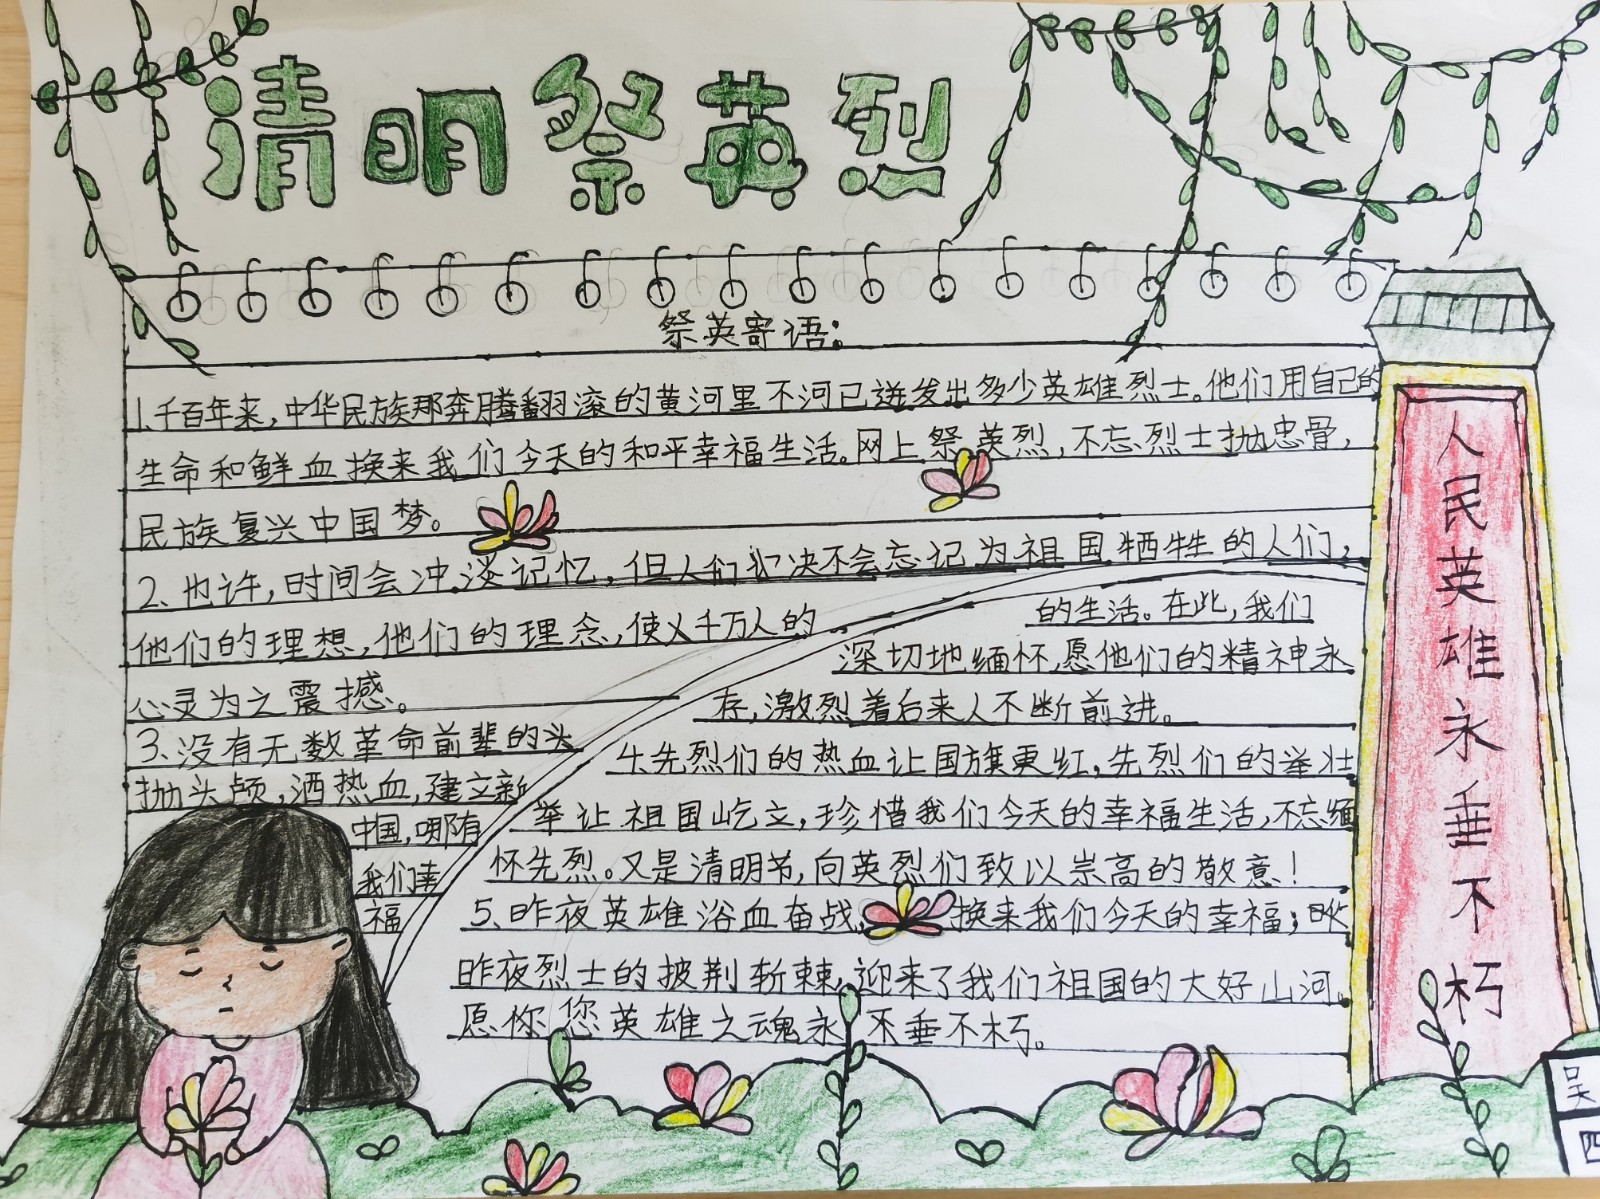 清明祭英烈
祭英寄语:
1.千百年来,中华民族那奔腾翻滚的黄河里不河已迸发出多少英雄烈士。他们用自己的
生命和鲜血换来我们今天的和平幸福生活。网上祭英烈,不忘烈士抛忠骨,
民族复兴中国梦。
2、也许,时间会冲淡记忆,但人们 决不会忘记为祖国牺牲的人们,
他们的理想,他们的理念,使 千万人的
心灵为之震撼。
3、没有无数革命前辈的头
抛头颅,洒热血,建立新
中国,哪有
我们幸
福
的生活。在此,我们
深切地缅怀,愿他们的精神永
存,激烈着后来人不断前进。
先烈们的热血让国旗更红,先烈们的举壮
举让祖国屹立,珍惜我们今天的幸福生活,不忘缅
怀先烈。又是清明节,向英烈们致以崇高的敬意!
5、昨夜英雄浴血奋战,换来我们今天的幸福;
昨夜烈士的披荆斩棘,迎来了我们祖国的大好山河。
愿你您英雄之魂永 不垂不朽。
人民英雄永垂不朽
吴
四